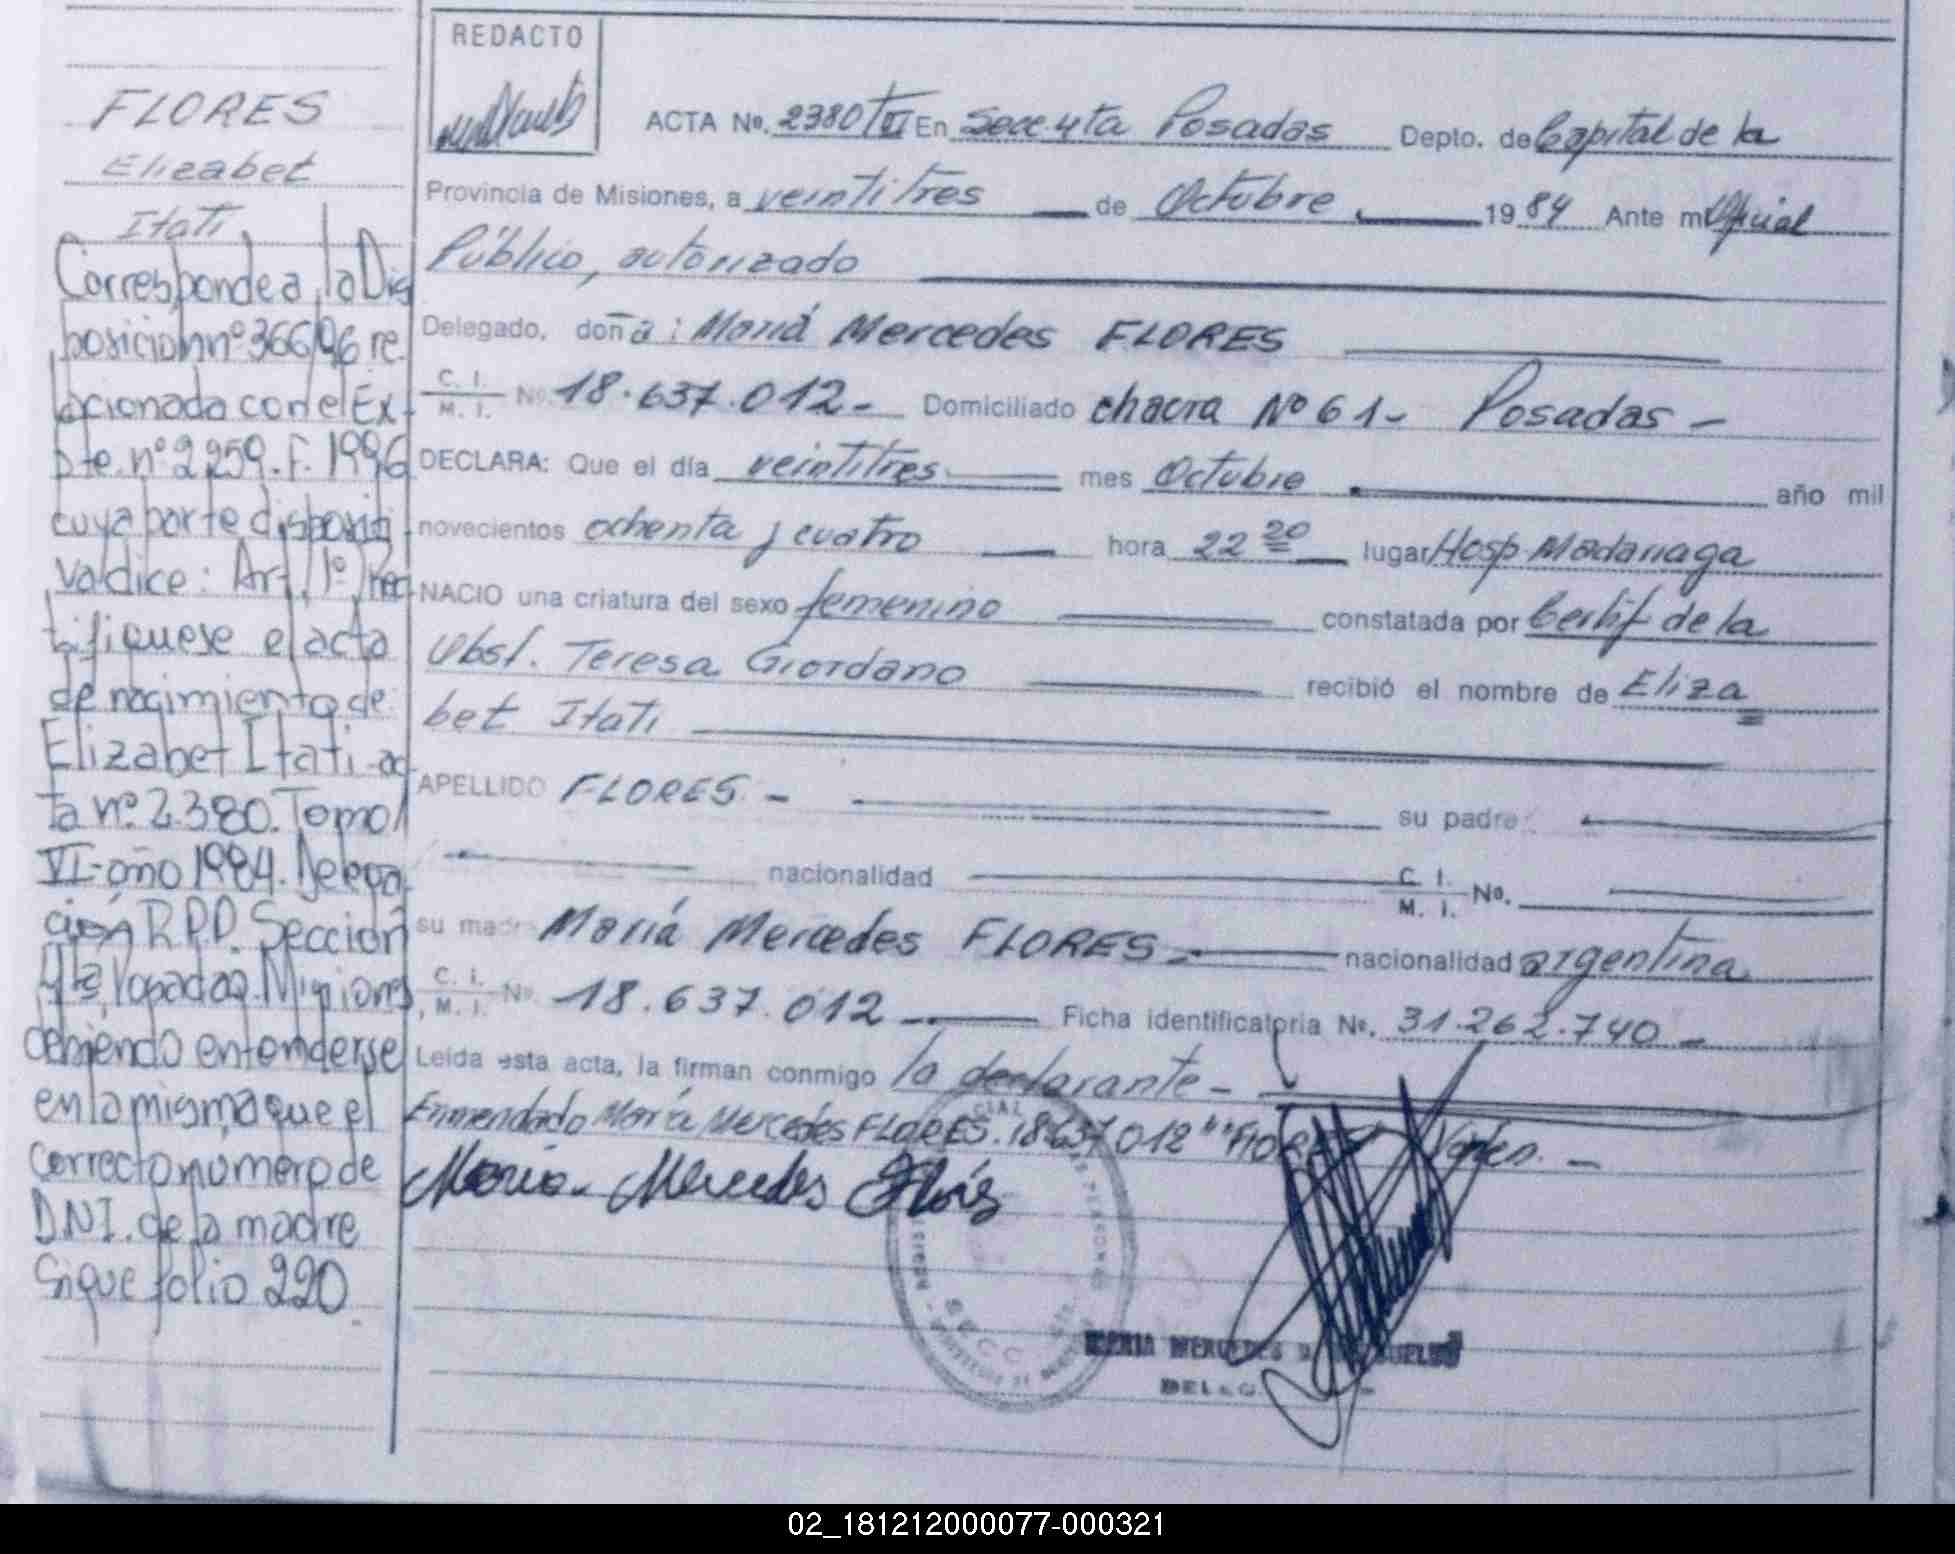 FLORES
Elizabet
Itati
Corresponde a la Dis
posicion nº 366/96 re
lacionada con el Ex-
pte. nº 2259. F. 1996
cuya parte dispositi
va dice: Art. 1º) Rec
tifiquese el acta
de nacimiento de:
Elizabet Itati-ac
ta nº. 2.380. Tomo
VI-año 1984. Delega
ción R.P.P. Sección
4ta, Posadas. Misiones
debiendo entenderse
en la misma que el
correcto número de
DNI. de la madre
Sigue folio 220
REDACTO
ACTA Nº. 2380 tVI En Secc. 4ta Posadas Depto. de Capital de la
Provincia de Misiones, a veintitres de Octubre 1984 Ante mi Oficial
Público, autorizado
Delegado, doña: María Mercedes FLORES
C. I.
M. I. Nº. 18.637.012- Domiciliado chacra Nº 61- Posadas -
DECLARA: Que el día veintitres mes Octubre año mil
novecientos ochenta y cuatro hora 22 20 lugar Hosp Madariaga
NACIO una criatura del sexo femenino constatada por Certif de la
Obst. Teresa Giordano recibió el nombre de Eliza
bet Itati
APELLIDO FLORES - su padre
nacionalidad C. I.
M. I. Nº.
su madre María Mercedes FLORES - nacionalidad argentina
C. I.
M. I. Nº. 18.637.012 Ficha identificatoria Nº. 31.262.740 -
Leída esta acta, la firman conmigo la declarante -
Enmendado María Mercedes FLORES. 18.637.012 "" FLORES Valen. -
María Mercedes Flores
SECC
MARIA MERCEDES
DELEG.
02_181212000077-000321